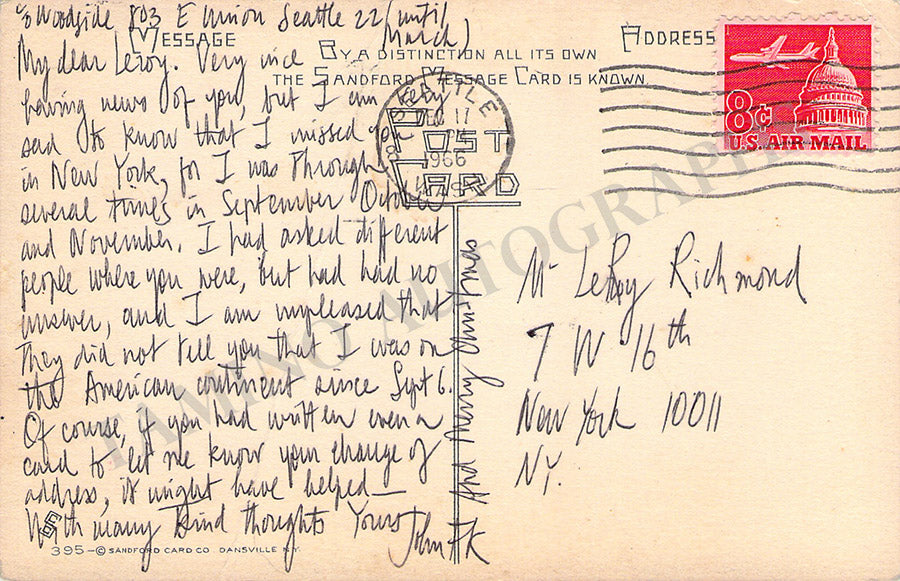 c/o Woodside 803 E Union Seattle 22 (until March)
MESSAGE
BY A DISTINCTION ALL ITS OWN
THE SANDFORD MESSAGE CARD IS KNOWN.
ADDRESS
My dear Leroy. Very nice
having news of you, but I am very
sad to know that I missed you
in New York, for I was through
several times in September October
and November. I had asked different
people where you were, but had had no
answer, and I am unpleased that
they did not tell you that I was on
the American continent since Sept 6.
Of course, if you had written even a
card to let me know your change of
address, it might have helped—
With many kind thoughts Yours
John
Happy Christmas
POST
CARD
SEATTLE
DEC 11
1966
8¢
U.S. AIR MAIL
Mr LeRoy Richmond
7 W 16th
New York 10011
NY.
395-© SANDFORD CARD CO. DANSVILLE N.Y.
TAMINO AUTOGRAPHS